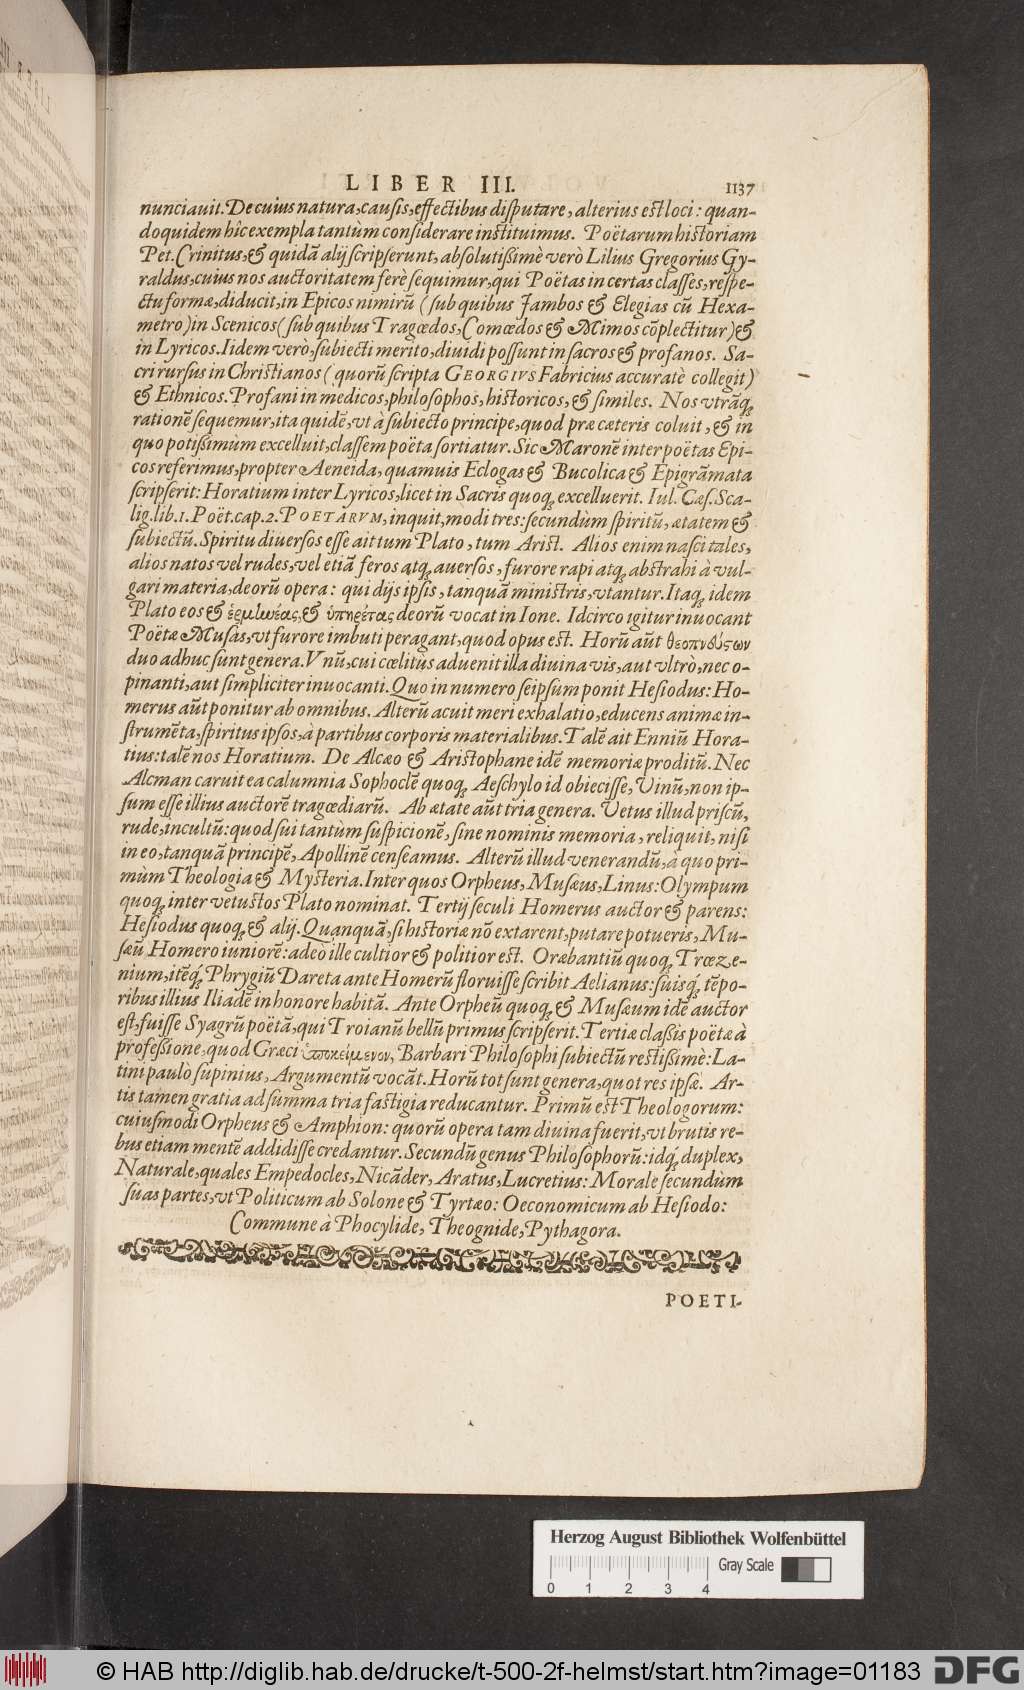 LIBER III. 1137
nunciauit. De cuius natura, causis, effectibus disputare, alterius est loci: quan-
doquidem hîc exempla tantùm considerare instituimus. Poëtarum historiam
Pet. Crinitus, & quidã alij scripserunt, absolutissimè verò Lilius Gregorius Gy-
raldus, cuius nos auctoritatem ferè sequimur, qui Poëtas in certas classes, respe-
ctu formæ, diducit, in Epicos nimirũ (sub quibus Jambos & Elegias cũ Hexa-
metro) in Scenicos (sub quibus Tragœdos, Comœdos & Mimos cõplectitur) &
in Lyricos. Iidem verò, subiecti merito, diuidi possunt in sacros & profanos. Sa-
cri rursus in Christianos (quorũ scripta GEORGIVS Fabricius accuratè collegit)
& Ethnicos. Profani in medicos, philosophos, historicos, & similes. Nos vtrãq;
rationẽ sequemur, ita quidẽ, vt à subiecto principe, quod præ cæteris coluit, & in
quo potissimùm excelluit, classem poëta sortiatur. Sic Maronẽ inter poëtas Epi-
cos referimus, propter Aeneida, quamuis Eclogas & Bucolica & Epigrãmata
scripserit: Horatium inter Lyricos, licet in Sacris quoq; excelluerit. Iul. Cæs. Sca-
lig. lib. 1. Poët. cap. 2. POETARVM, inquit, modi tres: secundùm spiritũ, ætatem &
subiectũ. Spiritu diuersos esse ait tum Plato, tum Arist. Alios enim nasci tales,
alios natos vel rudes, vel etiã feros atq; auersos, furore rapi atq; abstrahi à vul-
gari materia, deorũ opera: qui dijs ipsis, tanquã ministris, vtantur. Itaq; idem
Plato eos & ἑρμηνέας, & ὑπηρέτας deorũ vocat in Ione. Idcirco igitur inuocant
Poëtæ Musas, vt furore imbuti peragant, quod opus est. Horũ aũt θεοπνεύστων
duo adhuc sunt genera. Vnũ, cui cœlitùs aduenit illa diuina vis, aut vltrò, nec o-
pinanti, aut simpliciter inuocanti. Quo in numero seipsum ponit Hesiodus: Ho-
merus aũt ponitur ab omnibus. Alterũ acuit meri exhalatio, educens animæ in-
strumẽta, spiritus ipsos, à partibus corporis materialibus. Talẽ ait Enniũ Hora-
tius: talẽ nos Horatium. De Alcæo & Aristophane idẽ memoriæ proditũ. Nec
Alcman caruit ea calumnia Sophoclẽ quoq; Aeschylo id obiecisse, Vinũ, non ip-
sum esse illius auctorẽ tragœdiarũ. Ab ætate aũt tria genera. Vetus illud priscũ,
rude, incultũ: quod sui tantùm suspicionẽ, sine nominis memoria, reliquit, nisi
in eo, tanquã principẽ, Apollinẽ censeamus. Alterũ illud venerandũ, a quo pri-
mùm Theologia & Mysteria. Inter quos Orpheus, Musæus, Linus: Olympum
quoq; inter vetustos Plato nominat. Tertij seculi Homerus auctor & parens:
Hesiodus quoq; & alij. Quanquã, si historiæ nõ extarent, putare potueris, Mu-
sæũ Homero iuniorẽ: adeò ille cultior & politior est. Oræbantiũ quoq; Trœze-
nium, itẽq; Phrygiũ Dareta ante Homerũ floruisse scribit Aelianus: suisq; tẽpo-
ribus illius Iliadẽ in honore habitã. Ante Orpheũ quoq; & Musæum idẽ auctor
est, fuisse Syagrũ poëtã, qui Troianũ bellũ primus scripserit. Tertiæ classis poëtæ à
professione, quod Græci ὑποκείμενον, Barbari Philosophi subiectũ rectissimè: La-
tini paulò supinius, Argumentũ vocãt. Horũ tot sunt genera, quot res ipsæ. Ar-
tis tamen gratia ad summa tria fastigia reducantur. Primũ est Theologorum:
cuiusmodi Orpheus & Amphion: quorũ opera tam diuina fuerit, vt brutis re-
bus etiam mentẽ addidisse credantur. Secundũ genus Philosophorũ: idq; duplex,
Naturale, quales Empedocles, Nicãder, Aratus, Lucretius: Morale secundùm
suas partes, vt Politicum ab Solone & Tyrtæo: Oeconomicum ab Hesiodo:
Commune à Phocylide, Theognide, Pythagora.
POETI-
Herzog August Bibliothek Wolfenbüttel
Gray Scale
0 1 2 3 4
© HAB http://diglib.hab.de/drucke/t-500-2f-helmst/start.htm?image=01183 DFG